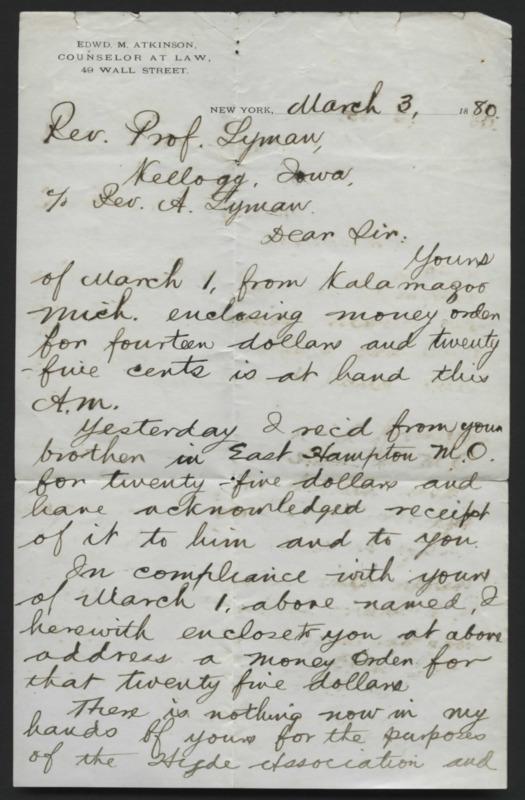 EDWD. M. ATKINSON,
COUNSELOR AT LAW,
49 WALL STREET.
NEW YORK, March 3, 1880.
Rev. Prof. Lyman,
Kellogg, Iowa,
℅ Rev. A. Lyman.
Dear Sir:
Yours
of March 1, from Kalamazoo
Mich. enclosing money order
for fourteen dollars and twenty
-five cents is at hand this
A.M.
Yesterday I rec'd from your
brother in East Hampton M.O.
for twenty-five dollars and
have acknowledged receipt
of it to him and to you.
In compliance with yours
of March 1, above named, I
herewith enclose to you at above
address a money order for
that twenty five dollars
There is nothing now in my
hands of yours for the purposes
of the Hyde Association and